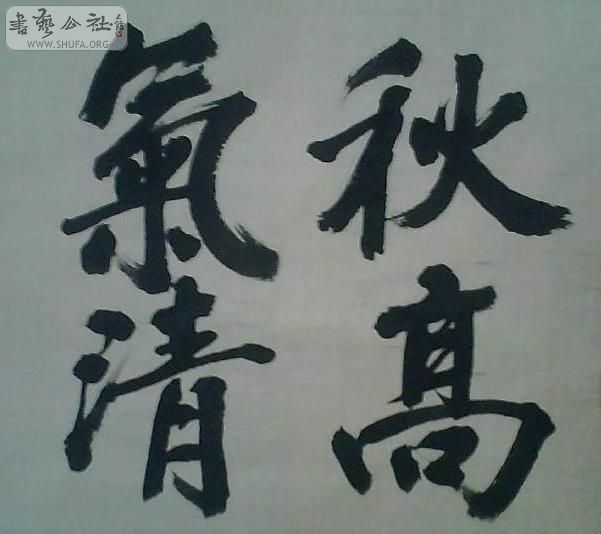 秋高
氣清
書藝公社
WWW.SHUFA.ORG